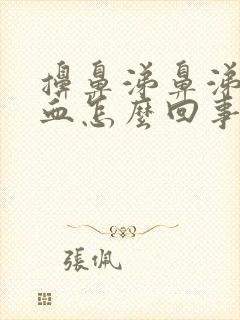 擤鼻涕鼻涕
血怎麼回事
張佩